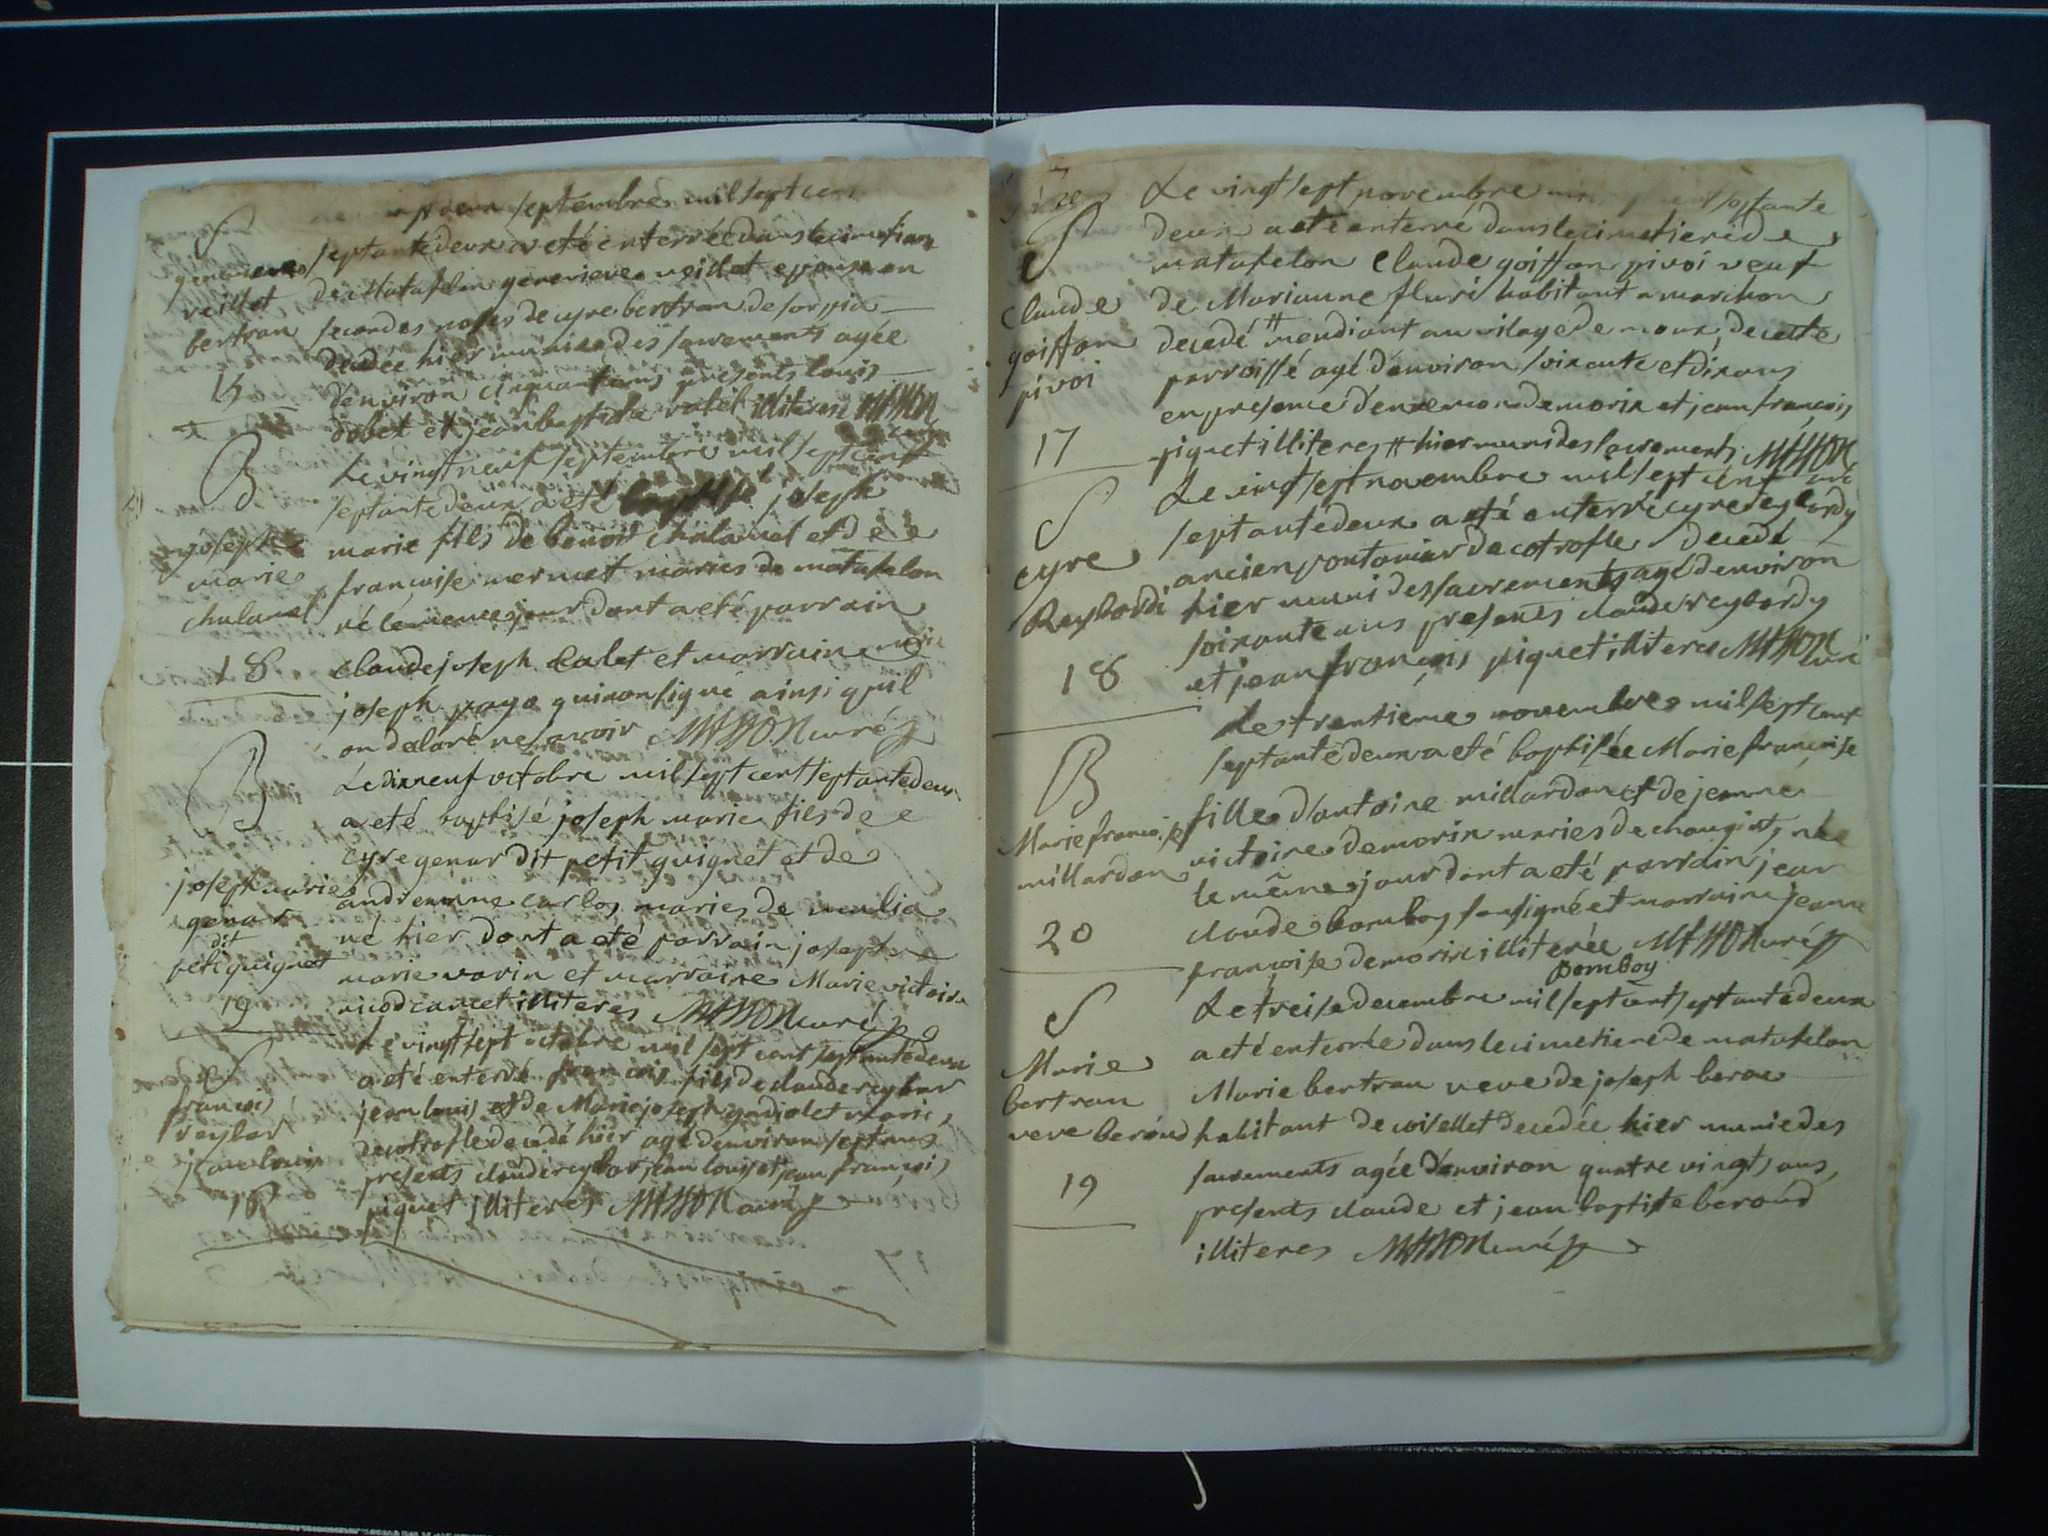 septembre mil sept cent
S
genevieve
veillet
bertran
15
septante deux a eté enterrée dans le cimetiere
de Matafelon genevieve veillet epouse en
secondes noses de cyre bertran de corpia
decedée hier munie des sacrements agée
d'environ cinquante ans presents louis
dobet et jean baptiste valet illiteres MASSON
B
joseph
marie
chalamel
18
Le vingt neuf septembre mil sept cent
septante deux a eté baptisé joseph
marie fils de benoit chalamel et de
francoise mermet mariés de matafelon
né le meme jour dont a eté parrain
claude joseph calet et marraine marie
joseph paya qui non signé ainsi quil
on declaré ne savoir MASSON curé
B
joseph marie
genar
dit
petiguignet
19
Le dix neuf octobre mil sept cent septante deux
a eté baptisé joseph marie fils de
cyre genar dit petit guignet et de
andrenne carlos mariés de
né hier dont a eté parrain joseph
marie varin et marraine Marie victoire
nicod cancet illiteres MASSON curé
S
francois
reybar
jean louis
16
Le vingt sept octobre mil sept cent septante deux
a eté enterré francois fils de claude reybar
jean louis et de Marie joseph gadiolet mariés
de cotrofle decedé hier agé d'environ sept ans
presents claude reybar jean louis et jean françois
piquet illiteres MASSON curé
S
Claude
goiffon
pivoi
17
Le vingt sept novembre septante
deux a eté enterré dans le cimetiere de
matafelon Claude goiffon pivoi veuf
de Marianne fluri habitant a marchon
decedé # mendiant au vilage de moux, de cette
parroisse agé d'environ soixante et dix ans
en presence d'enemond demorix et jean françois
piquet illiteres # hier muni des sacrements MASSON curé
S
cyre
Reybordi
18
Le vingt sept novembre mil sept cent
septante deux a eté enterré cyre reybordy
ancien pontanier de cotrofle decedé
hier muni des sacrements agé d'environ
soixante ans presents claude reybordy
et jean françois piquet illiteres MASSON curé
B
Marie françoise
millardon
20
Le trentieme novembre mil sept cent
septante deux a eté baptisée Marie françoise
fille d'antoine millardon et de jeanne
victoire demorix mariés de chougeat, née
le même jour dont a eté parrain jean
claude bomboy soussigné et marraine jeanne
françoise demorix illiterée MASSON curé
bomboy
S
Marie
bertran
veve beroud
19
Le treise decembre mil sept cent septante deux
a eté enterrée dans le cimetiere de matafelon
Marie bertran veve de joseph beroud
habitant de coisellet decedée hier munie des
sacrements agée d'environ quatre vingts ans
presents claude et jean baptiste beroud
illiteres MASSON curé